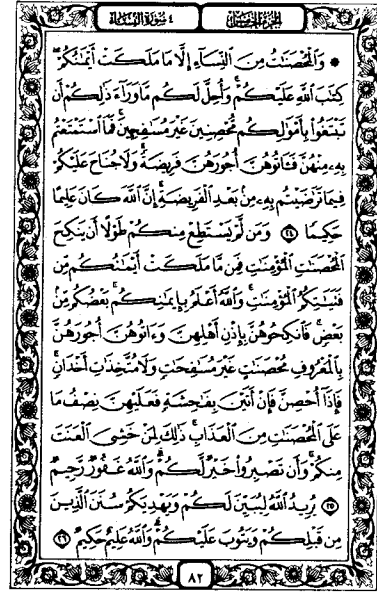 الجزء الخامس
٤ سورة النساء
۞ وَٱلْمُحْصَنَٰتُ مِنَ ٱلنِّسَآءِ إِلَّا مَا مَلَكَتْ أَيْمَٰنُكُمْ
كِتَٰبَ ٱللَّهِ عَلَيْكُمْ وَأُحِلَّ لَكُم مَّا وَرَآءَ ذَٰلِكُمْ أَن
تَبْتَغُوا۟ بِأَمْوَٰلِكُم مُّحْصِنِينَ غَيْرَ مُسَٰفِحِينَ فَمَا ٱسْتَمْتَعْتُم
بِهِۦ مِنْهُنَّ فَـَٔاتُوهُنَّ أُجُورَهُنَّ فَرِيضَةً وَلَا جُنَاحَ عَلَيْكُمْ
فِيمَا تَرَٰضَيْتُم بِهِۦ مِنۢ بَعْدِ ٱلْفَرِيضَةِ إِنَّ ٱللَّهَ كَانَ عَلِيمًا
حَكِيمًا ٢٤ وَمَن لَّمْ يَسْتَطِعْ مِنكُمْ طَوْلًا أَن يَنكِحَ
ٱلْمُحْصَنَٰتِ ٱلْمُؤْمِنَٰتِ فَمِن مَّا مَلَكَتْ أَيْمَٰنُكُم مِّن
فَتَيَٰتِكُمُ ٱلْمُؤْمِنَٰتِ وَٱللَّهُ أَعْلَمُ بِإِيمَٰنِكُم بَعْضُكُم مِّنۢ
بَعْضٍ فَٱنكِحُوهُنَّ بِإِذْنِ أَهْلِهِنَّ وَءَاتُوهُنَّ أُجُورَهُنَّ
بِٱلْمَعْرُوفِ مُحْصَنَٰتٍ غَيْرَ مُسَٰفِحَٰتٍ وَلَا مُتَّخِذَٰتِ أَخْدَانٍ
فَإِذَآ أُحْصِنَّ فَإِنْ أَتَيْنَ بِفَٰحِشَةٍ فَعَلَيْهِنَّ نِصْفُ مَا
عَلَى ٱلْمُحْصَنَٰتِ مِنَ ٱلْعَذَابِ ذَٰلِكَ لِمَنْ خَشِىَ ٱلْعَنَتَ
مِنكُمْ وَأَن تَصْبِرُوا۟ خَيْرٌ لَّكُمْ وَٱللَّهُ غَفُورٌ رَّحِيمٌ
٢٥ يُرِيدُ ٱللَّهُ لِيُبَيِّنَ لَكُمْ وَيَهْدِيَكُمْ سُنَنَ ٱلَّذِينَ
مِن قَبْلِكُمْ وَيَتُوبَ عَلَيْكُمْ وَٱللَّهُ عَلِيمٌ حَكِيمٌ ٢٦
٨٢